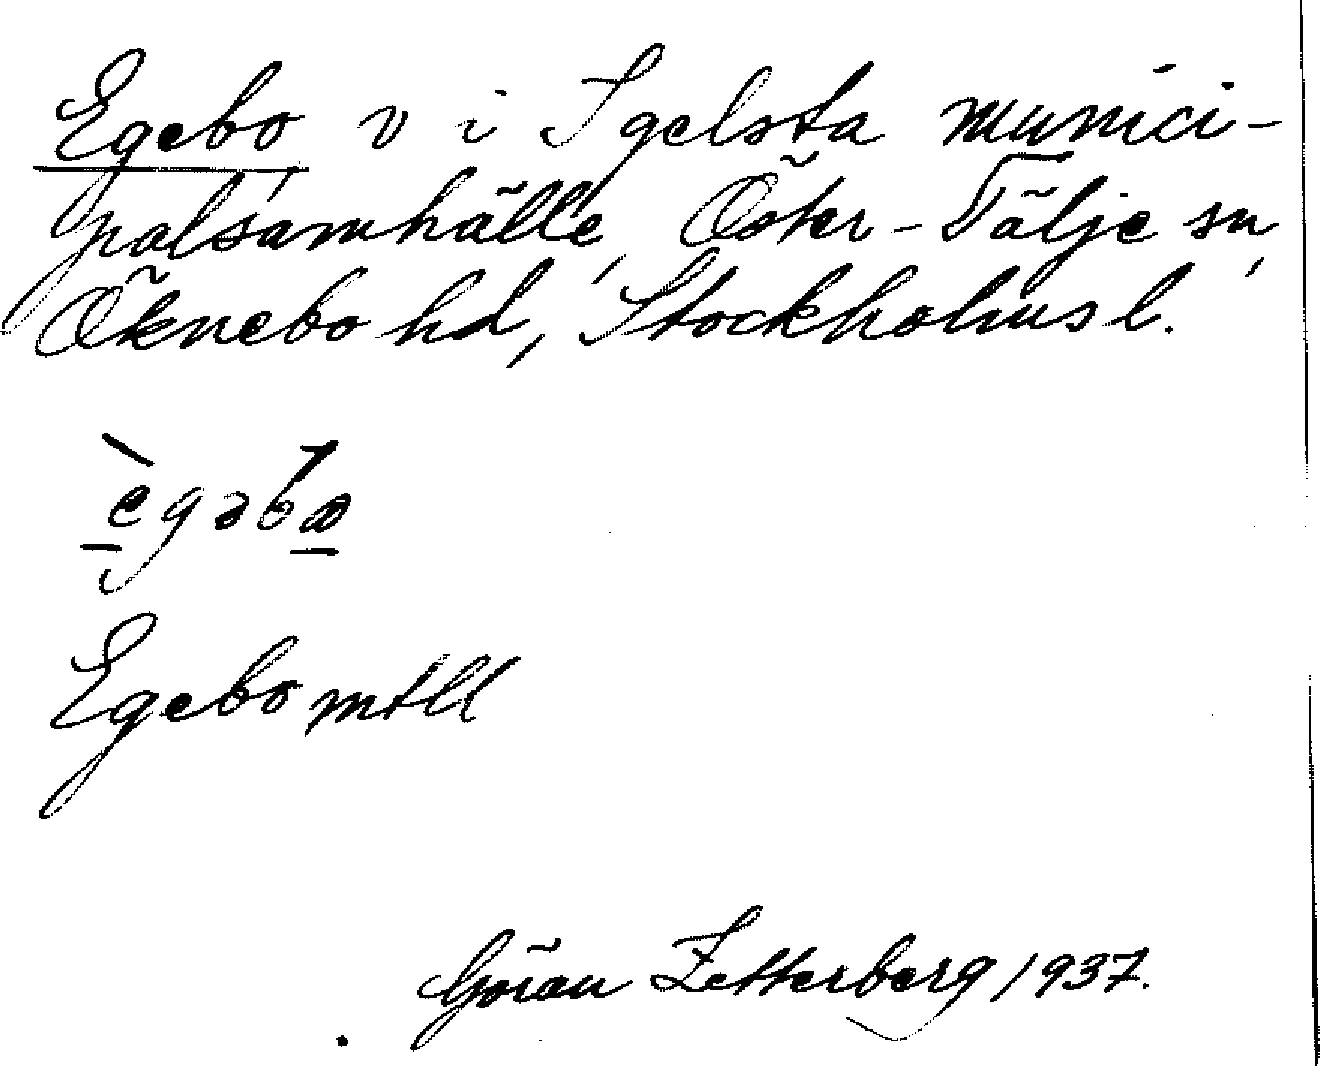 Egebo v i Igelsta munici-
palsamhälle, Öster-Tälje sn,
Öknebo hd, Stockholms l.
ègəbω
Egebo mtll
Göran Zetterberg 1937.